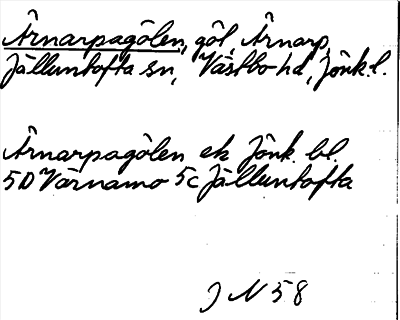 Årnarpagölen, göl, Årnarp,
Jälluntofta sn, Västbo hd, Jönk. l.
Årnarpagölen ek Jönk. bl.
5D Värnamo 5c Jälluntofta
J N 58